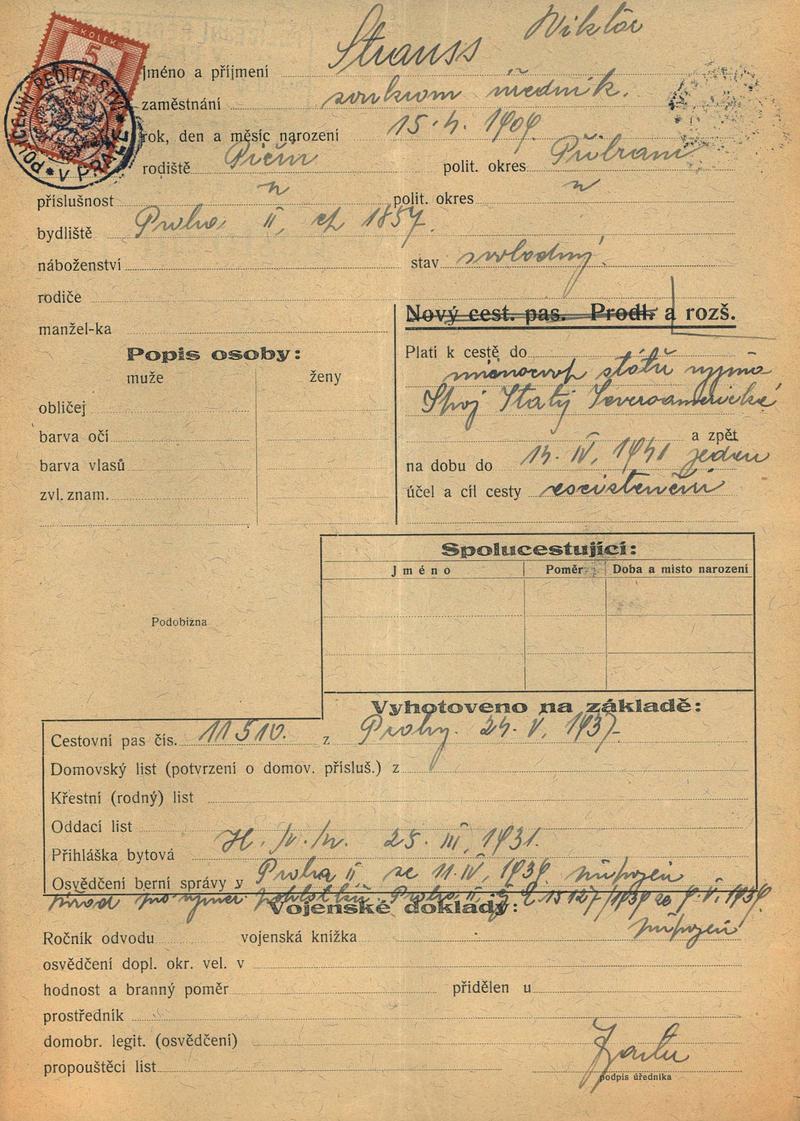 KOLEK
5
POLICEJNÍ ŘEDITELSTVÍ V PRAZE
Jméno a příjmení Strauss Viktor
zaměstnání soukrom úředník.
rok, den a měsíc narození 15.4. 1909
rodiště Pičín polit. okres Příbram
příslušnost " polit. okres "
bydliště Praha II, čp 1857.
náboženství stav svobodný
rodiče
manžel-ka
Nový cest. pas. Prodl. a rozš.
Popis osoby:
muže ženy
obličej
barva očí
barva vlasů
zvl. znam.
Platí k cestě do
států vyjma
Spoj Státy Severoamerické
a zpět
na dobu do IV, 1941 jeden
účel a cíl cesty existenční
Spolucestující:
Jméno Poměr Doba a místo narození
Podobizna
Vyhotoveno na základě:
Cestovní pas čís. 11510. z Prahy 24. V, 1937.
Domovský list (potvrzení o domov. přísluš.) z
Křestní (rodný) list
Oddací list
Přihláška bytová 25. III, 1931.
Osvědčení berní správy v Praha II ze 11. IV, 1939. připojen
Praha II, 15127/1939 ze V, 1939
připojen
Vojenské doklady:
Ročník odvodu vojenská knížka
osvědčení dopl. okr. vel. v
hodnost a branný poměr přidělen u
prostředník
domobr. legit. (osvědčení)
propouštěcí list
podpis úředníka